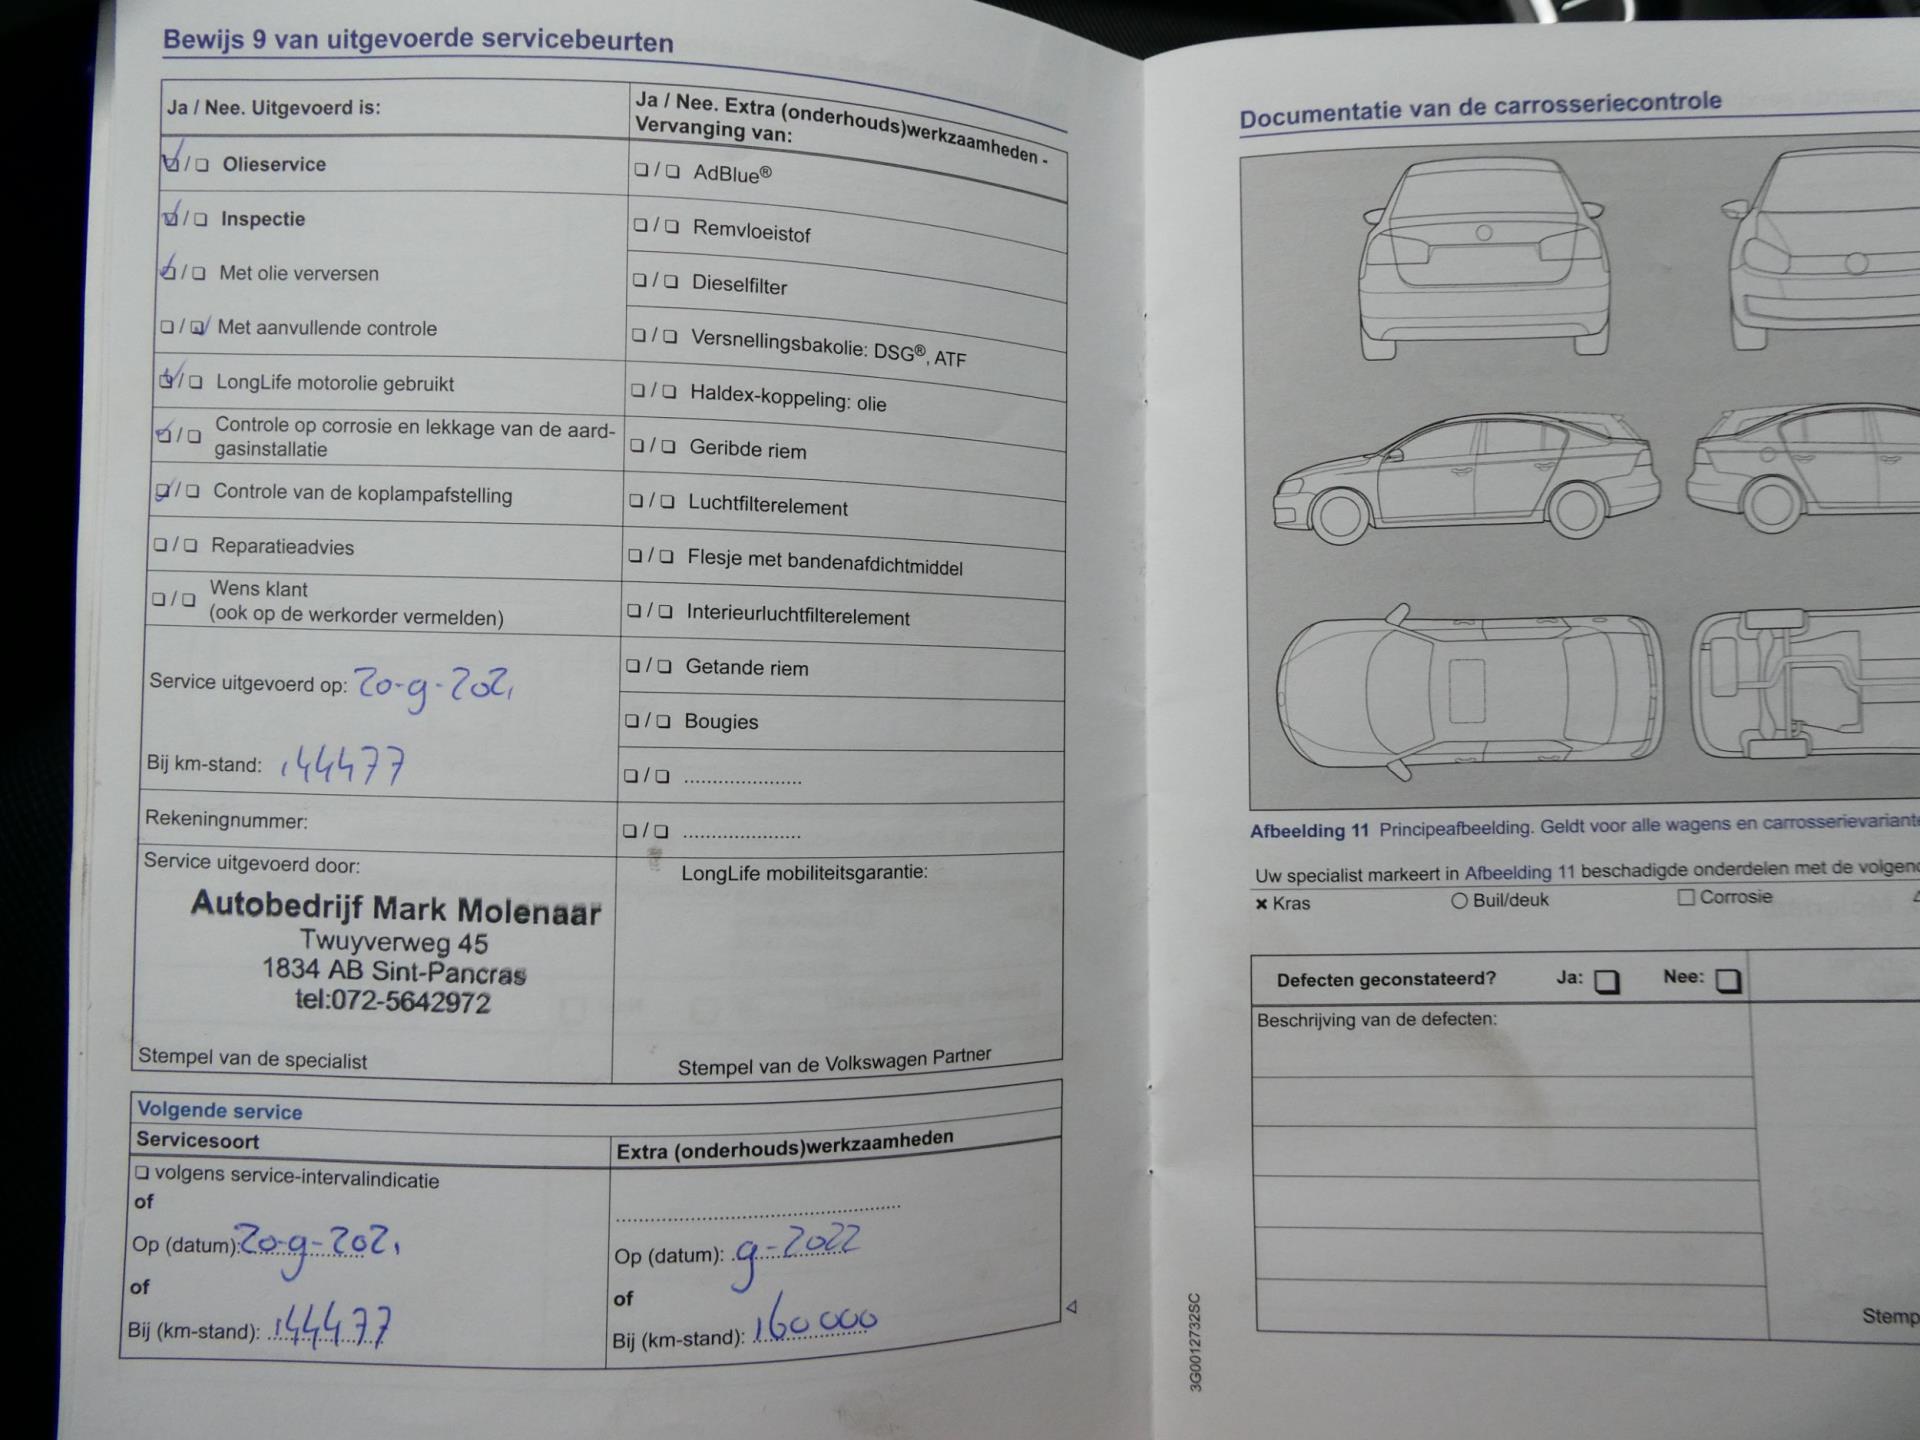 Bewijs 9 van uitgevoerde servicebeurten
Ja / Nee. Uitgevoerd is:
Olieservice
Inspectie
Met olie verversen
Met aanvullende controle
LongLife motorolie gebruikt
Controle op corrosie en lekkage van de aard-
gasinstallatie
Controle van de koplampafstelling
Reparatieadvies
Wens klant
(ook op de werkorder vermelden)
Service uitgevoerd op: 20-9-2021
Bij km-stand: 144477
Rekeningnummer:
Service uitgevoerd door:
Autobedrijf Mark Molenaar
Twuyverweg 45
1834 AB Sint-Pancras
tel:072-5642972
Stempel van de specialist
Ja / Nee. Extra (onderhouds)werkzaamheden -
Vervanging van:
AdBlue®
Remvloeistof
Dieselfilter
Versnellingsbakolie: DSG®, ATF
Haldex-koppeling: olie
Geribde riem
Luchtfilterelement
Flesje met bandenafdichtmiddel
Interieurluchtfilterelement
Getande riem
Bougies
LongLife mobiliteitsgarantie:
Stempel van de Volkswagen Partner
Volgende service
Servicesoort
volgens service-intervalindicatie
of
Op (datum): 20-9-2021
of
Bij (km-stand): 144477
Extra (onderhouds)werkzaamheden
Op (datum): 9-2022
of
Bij (km-stand): 160000
Documentatie van de carrosseriecontrole
Afbeelding 11 Principeafbeelding. Geldt voor alle wagens en carrosserievariante
Uw specialist markeert in Afbeelding 11 beschadigde onderdelen met de volgend
Kras
Buil/deuk
Corrosie
Defecten geconstateerd? Ja: Nee:
Beschrijving van de defecten:
Stemp
3G0012732SC